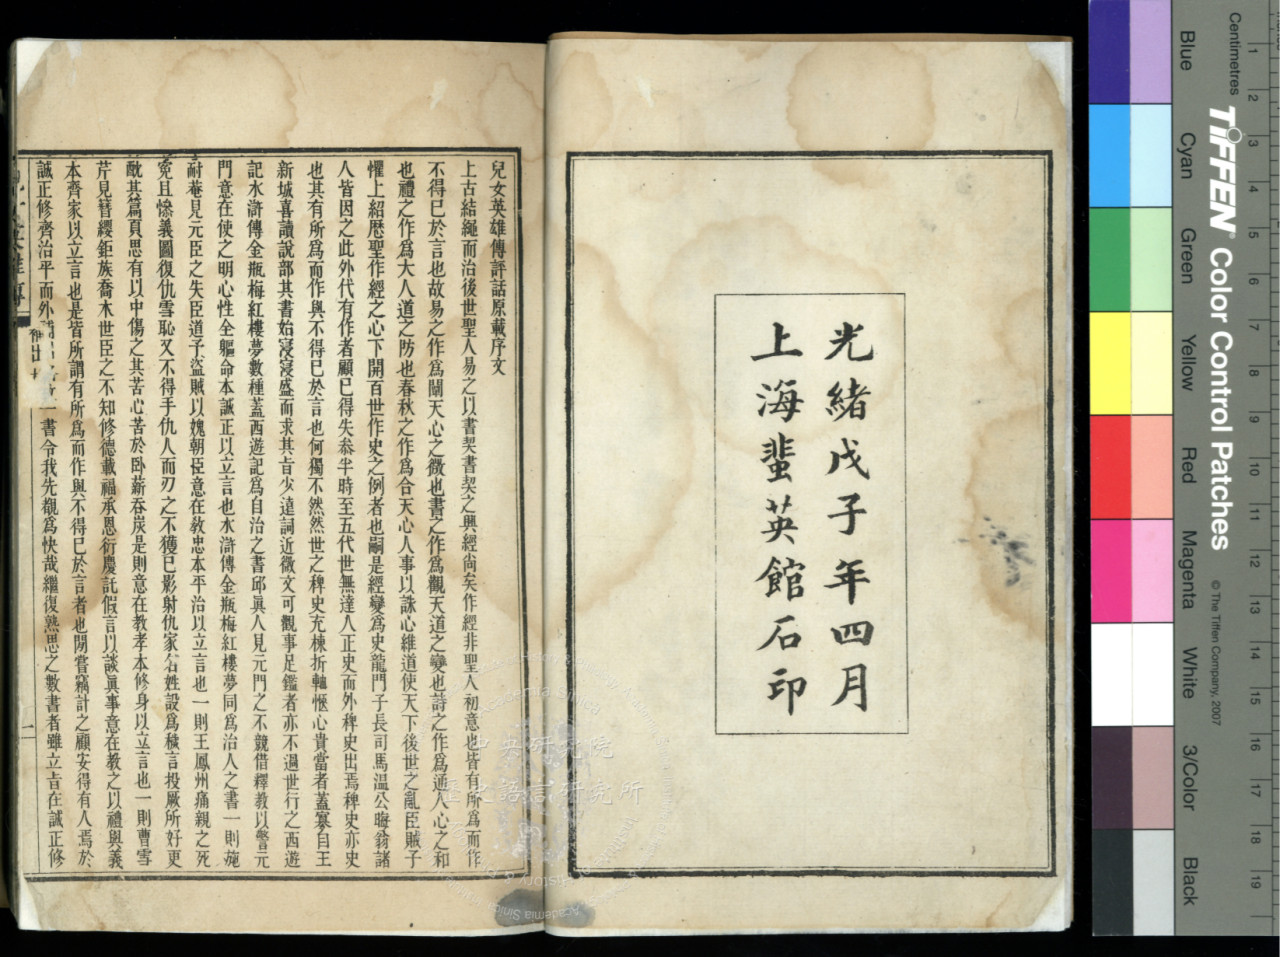 光緒戊子年四月
上海蜚英館石印
兒女英雄傳評話原載序文
上古結繩而治後世聖人易之以書契書契之興經尙矣作經非聖人初意也皆有所爲而作
不得已於言也故易之作爲闡天心之微也書之作爲觀天道之變也詩之作爲通人心之和
也禮之作爲大人道之防也春秋之作爲合天心人事以誅心維道使天下後世之亂臣賊子
懼上紹歷聖作經之心下開百世作史之例者也嗣是經變爲史龍門子長司馬溫公晦翁諸
人皆因之此外代有作者顧已得失叅半時至五代世無達人正史而外稗史出焉稗史亦史
也其有所爲而作與不得已於言也何獨不然然世之稗史充棟折軸愜心貴當者蓋寡自王
新城喜讀說部其書始寖寖盛而求其旨少遠詞近微文可觀事足鑑者亦不過世行之西遊
記水滸傳金瓶梅紅樓夢數種蓋西遊記爲自治之書邱眞人見元門之不競借釋教以警元
門意在使之明心性全軀命本誠正以立言也水滸傳金瓶梅紅樓夢同爲治人之書一則施
耐菴見元臣之失臣道予盜賊以媿朝臣意在敎忠本平治以立言也一則王鳳州痛親之死
寃且慘義圖復仇雪恥又不得手仇人而刃之不獲已影射仇家名姓設爲穢言投厥所好更
酖其篇頁思有以中傷之其苦心苦於卧薪吞炭是則意在教孝本修身以立言也一則曹雪
芹見簪纓鉅族喬木世臣之不知修德載福承恩衍慶託假言以談眞事意在教之以禮與義
本齊家以立言也是皆所謂有所爲而作與不得已於言者也閒嘗竊計之顧安得有人焉於
誠正修齊治平而外 一書令我先覩爲快哉繼復熟思之數書者雖立旨在誠正修
一
Blue
Cyan
Green
Yellow
Red
Magenta
White
3/Color
Black
Centimetres
TIFFEN® Color Control Patches
© The Tiffen Company, 2007
1 2 3 4 5 6 7 8 9 10 11 12 13 14 15 16 17 18 19
中央研究院
歷史語言研究所